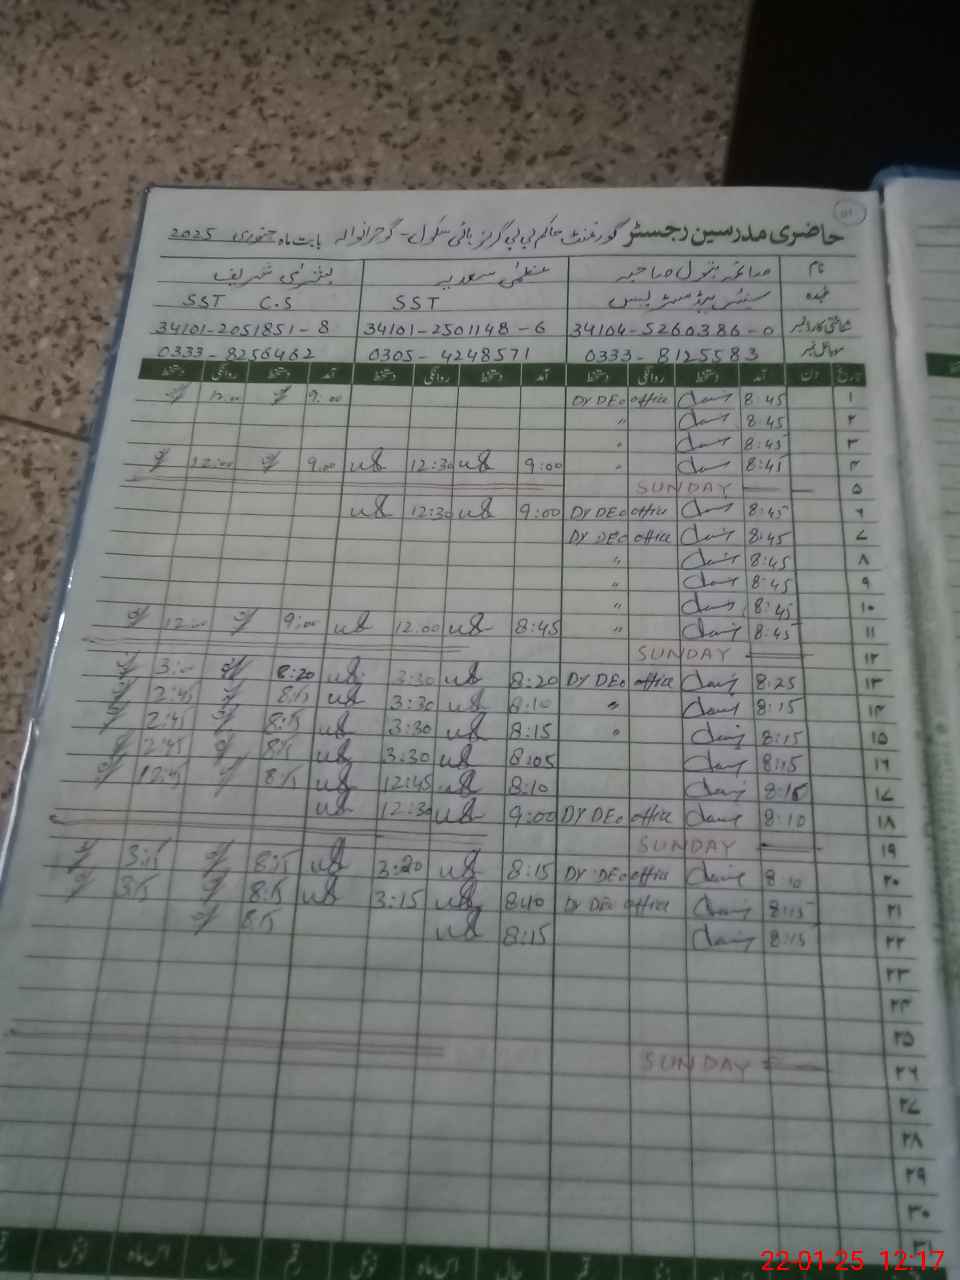 حاضری مدرسین رجسٹر گورنمنٹ حاکم بی بی گرلز ہائی سکول - گوجرانوالہ بابت ماہ جنوری 2025
نام صائمہ بتول صاحبہ عظمیٰ سعدیہ بشریٰ شریف
عہدہ سینئر ہیڈ مسٹریس SST SST C.S
شناختی کارڈ نمبر 34104-5260386-0 34101-2501148-6 34101-2051851-8
موبائل نمبر 0333-8125583 0305-4248571 0333-8256462
تاریخ دن آمد دستخط روانگی دستخط آمد دستخط روانگی دستخط آمد دستخط روانگی دستخط
۱ 8:45 DY DEO office 9:00 12:00
۲ 8:45 "
۳ 8:45 "
۴ 8:45 " 9:00 12:30 9:00 12:00
۵ SUNDAY
۶ 8:45 DY DEO office 9:00 12:30
۷ 8:45 DY DEO office
۸ 8:45 "
۹ 8:45 "
۱۰ 8:45 "
۱۱ 8:45 " 8:45 12:00 9:00 12:00
۱۲ SUNDAY
۱۳ 8:25 DY DEO office 8:20 3:30 8:20 3:00
۱۴ 8:15 " 8:10 3:30 8:15 2:45
۱۵ 8:15 " 8:15 3:30 8:15 2:45
۱۶ 8:15 8:05 3:30 8:15 2:45
۱۷ 8:15 8:10 12:45 8:15 12:45
۱۸ 8:10 DY DEO office 9:00 12:30
۱۹ SUNDAY
۲۰ 8:10 DY DEO office 8:15 3:20 8:15 3:15
۲۱ 8:15 DY DEO office 8:10 3:15 8:15 3:15
۲۲ 8:15 8:15 8:15
۲۳
۲۴
۲۵
۲۶ SUNDAY
۲۷
۲۸
۲۹
۳۰
۳۱
حال رقم نوٹل اس ماہ حال رقم نوٹل اس ماہ
22-01-25 12:17